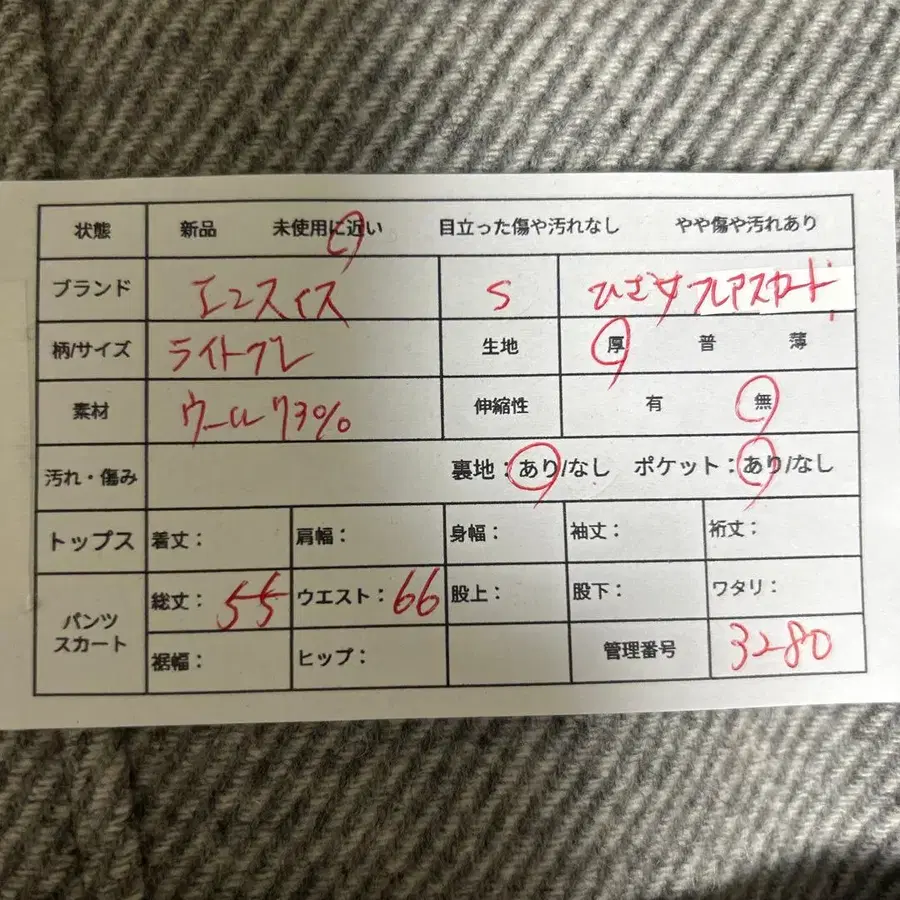 状態 新品 未使用に近い 目立った傷や汚れなし やや傷や汚れあり
ブランド エンスイス S ひざ丈フレアスカート
柄/サイズ ライトグレ 生地 厚 普 薄
素材 ウール73% 伸縮性 有 無
汚れ・傷み 裏地：あり/なし ポケット：あり/なし
トップス 着丈： 肩幅： 身幅： 袖丈： 裄丈：
パンツ スカート
総丈：55 ウエスト：66 股上： 股下： ワタリ：
裾幅： ヒップ： 管理番号 3280